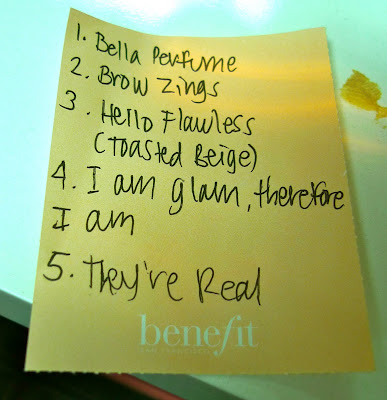 1. Bella Perfume
2. Brow Zings
3. Hello Flawless
(Toasted Beige)
4. I am glam, therefore
I am
5. They're Real
benefit
SAN FRANCISCO